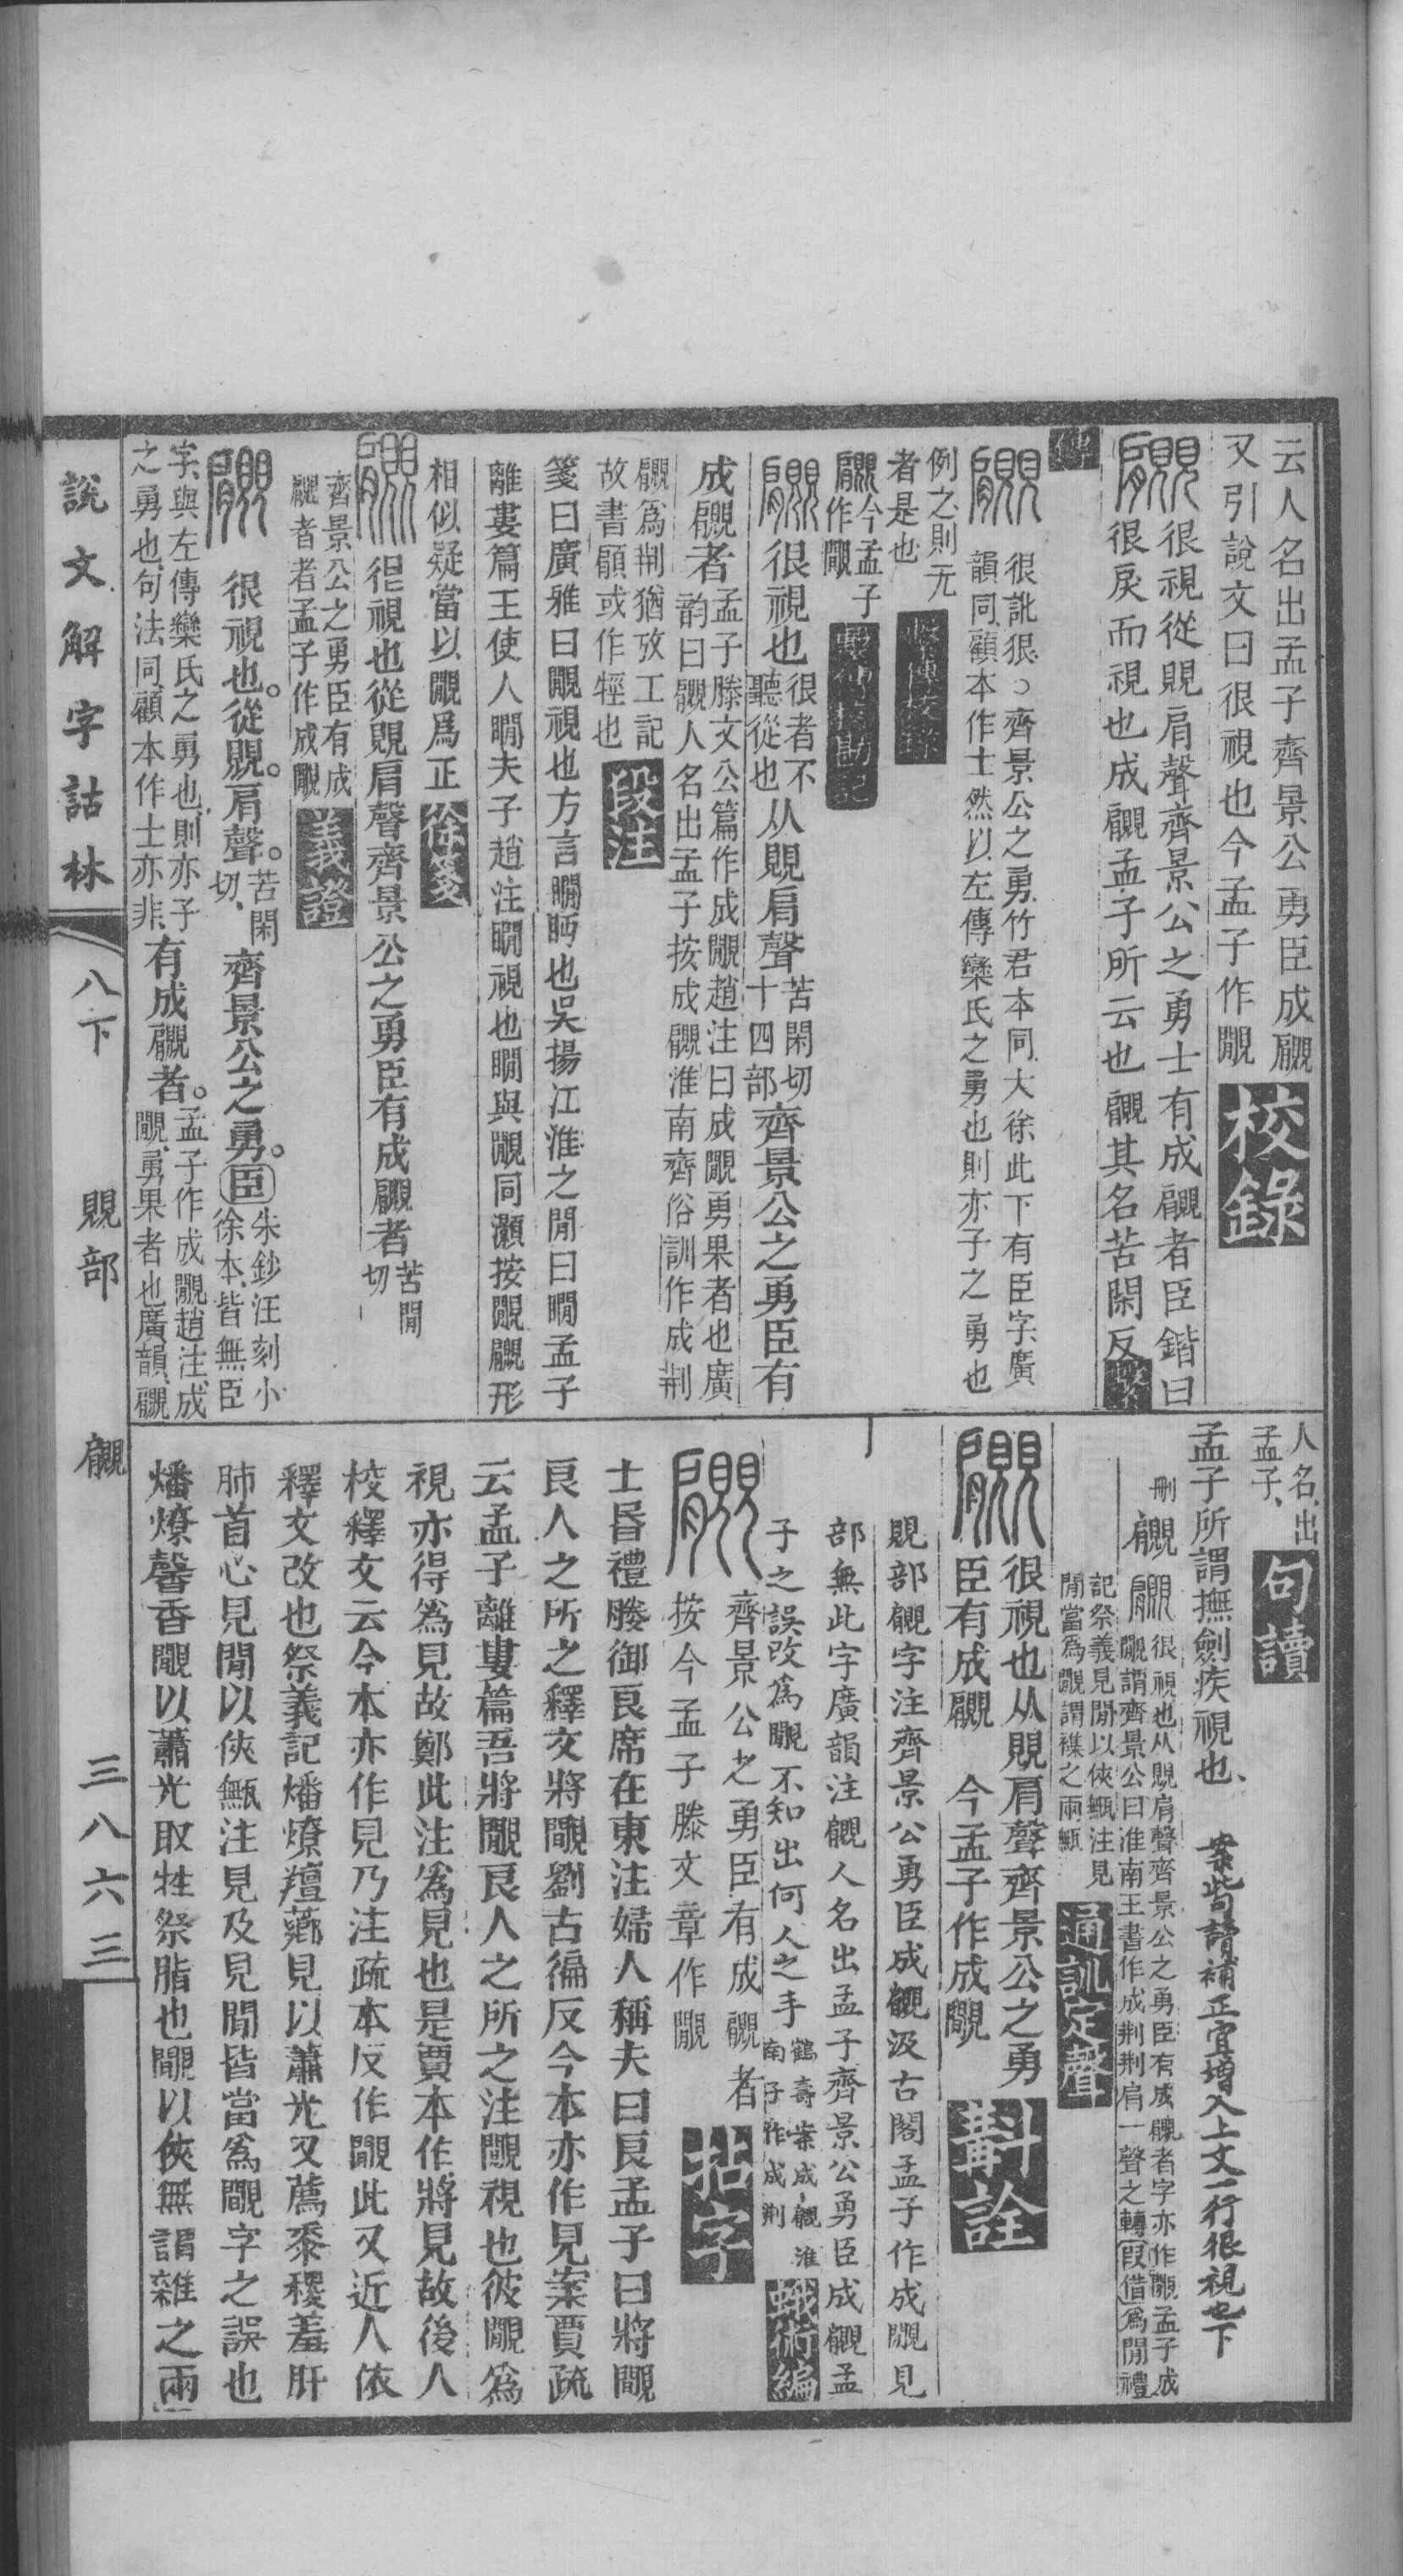 云人名出孟子齊景公勇臣成覸
又引說文曰很視也今孟子作覸校錄
很視從覞肩聲齊景公之勇士有成覸者臣鍇曰
很戾而視也成覸孟子所云也覸其名苦閑反繫
傳
很訛狠○齊景公之勇竹君本同大徐此下有臣字廣
韻同顧本作士然以左傳欒氏之勇也則亦子之勇也
例之則无
者是也
今孟子
作覸
很視也很者不
聽從也从覞肩聲苦閑切
十四部齊景公之勇臣有
成覸者孟子滕文公篇作成覸趙注曰成覸勇果者也廣
韵曰覸人名出孟子按成覸淮南齊俗訓作成荆
覸爲荆猶攷工記
故書顅或作牼也段注
箋曰廣雅曰覸視也方言瞷眄也吳揚江淮之閒曰瞷孟子
離婁篇王使人瞷夫子趙注瞷視也瞷與覸同灝按覸覸形
相似疑當以覸爲正徐箋
很視也從覞肩聲齊景公之勇臣有成覸者苦閒
切
齊景公之勇臣有成
覸者者孟子作成覸義證
很視也。從覞。肩聲。苦閑
切、齊景公之勇。臣朱鈔汪刻小
徐本、皆無臣
字、與左傳欒氏之勇也、則亦子
之勇也、句法同、顧本作士亦非、有成覸者。孟子作成覸、趙注、成
覸、勇果者也、廣韻、覸
人名、出
孟子、句讀
孟子所謂撫劍疾視也、案此句讀補正宜增入上文一行很視也下
刪
覸很視也从覞肩聲齊景公之勇臣有成覸者字亦作覸孟子成
覸謂齊景公曰淮南王書作成荆荆肩一聲之轉叚借爲閒禮
記祭義見閒以俠甒注見
閒當爲覸謂襍之兩甒通訓定聲
很視也从覞肩聲齊景公之勇
臣有成覸　今孟子作成覸斠詮
覞部覸字注齊景公勇臣成覸汲古閣孟子作成覸見
部無此字廣韻注覸人名出孟子齊景公勇臣成覸孟
子之誤改爲覸不知出何人之手鶴壽案成覸淮
南子作成荆蛾術編
齊景公之勇臣有成覸者
按今孟子滕文章作覸拈字
士昏禮媵御良席在東注婦人稱夫曰良孟子曰將覸
良人之所之釋文將覸劉古徧反今本亦作見案賈疏
云孟子離婁篇吾將覸良人之所之注覸視也彼覸爲
視亦得爲見故鄭此注爲見也是賈本作將見故後人
校釋文云今本亦作見乃注疏本反作覸此又近人依
釋文改也祭義記燔燎羶薌見以蕭光又薦黍稷羞肝
肺首心見閒以俠甒注見及見閒皆當爲覸字之誤也
燔燎馨香覸以蕭光取牲祭脂也覸以俠甒謂雜之兩
說文解字詁林　八下　覞部　覸　三八六三